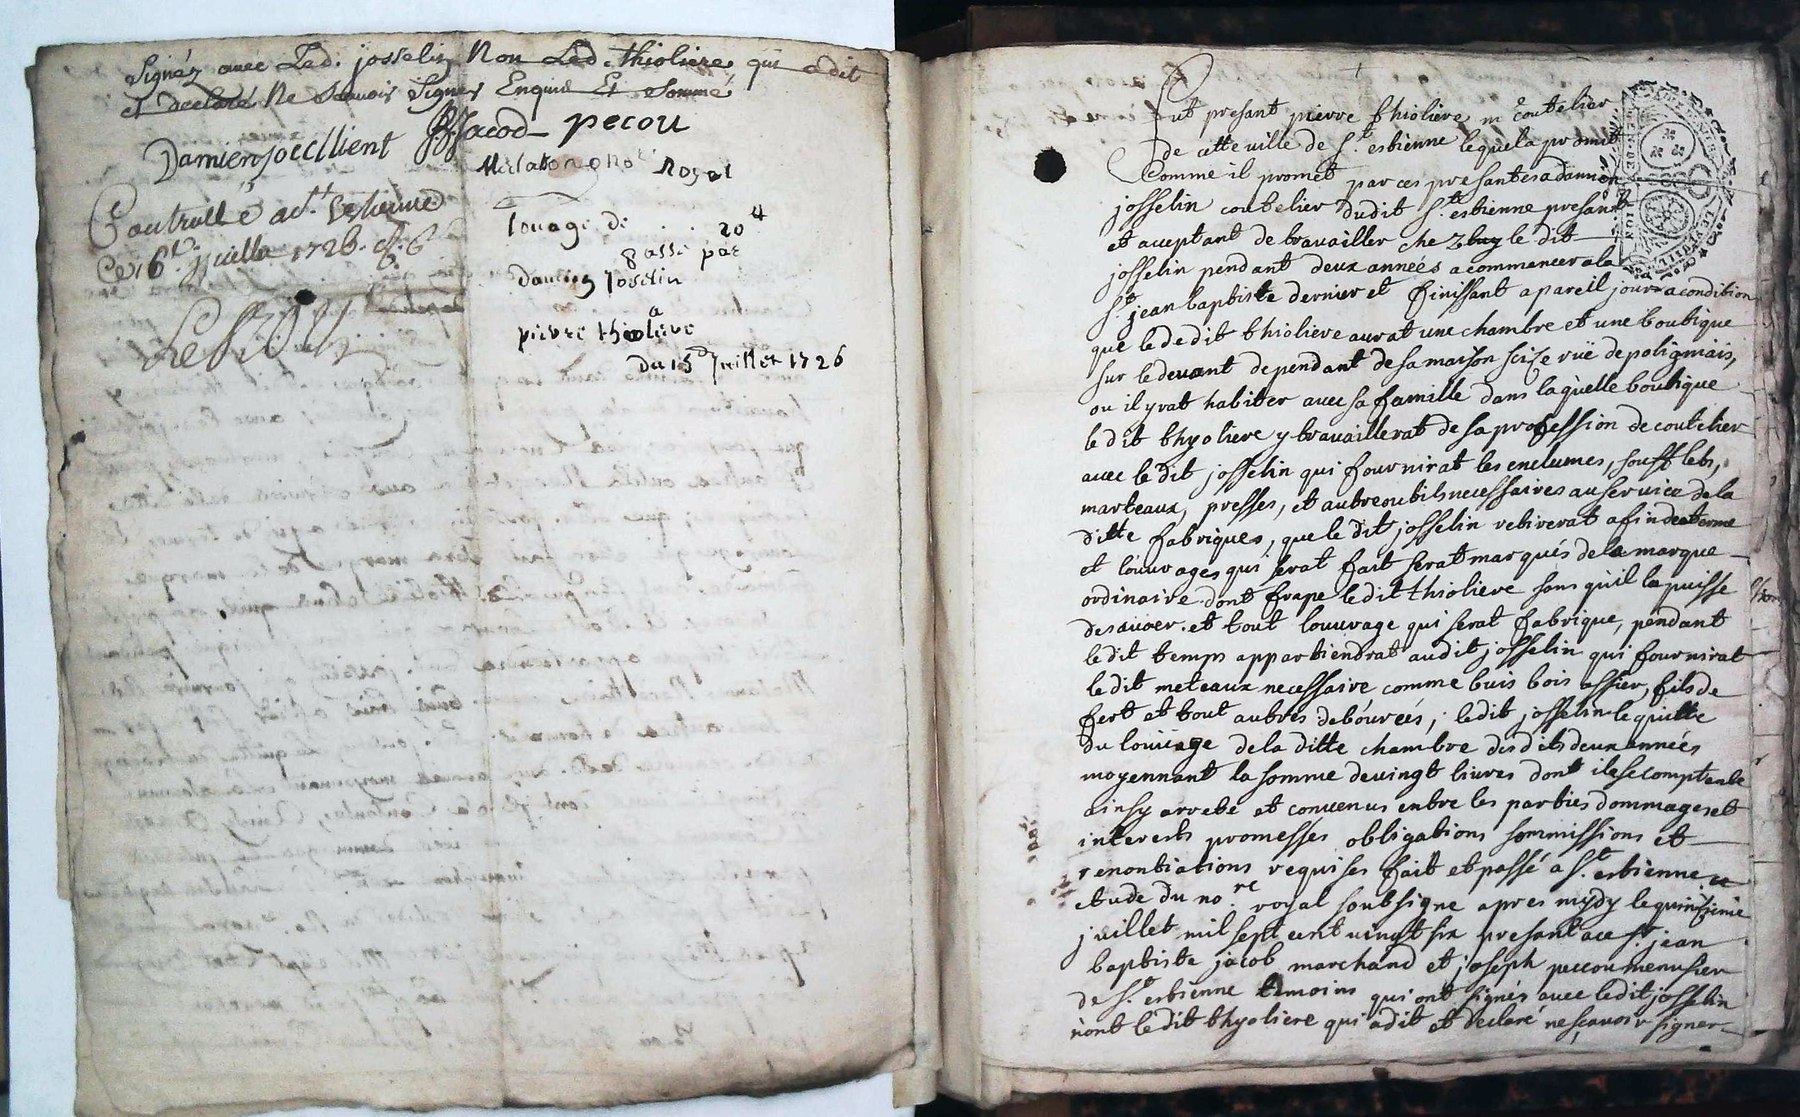 Signéz avec Led. josselin Non Led. thioliere qui a dit
et declaré Ne Scavoir Signer Enquis Et Sommé
Damien joccllient JBJacod pecou
Royal
Controlle a St. Estienne
Ce 16e. juillet 1726.
louage de . . . 20
passé par
Damien Joselin
a
pierre thioliere
Du 15e Juillet 1726
Fut presant pierre thioliere me coutelier
de cette ville de St. estienne lequel a promit
Comme il promet par ces presantes a damien
josselin coutelier dudit St. estienne presant
et acceptant de travailler chez luy le dit
josselin pendant deux années a commencer a la
St. jean baptiste dernier et finissant a pareil jour a condition
que le de dit thioliere aurat une chambre et une boutique
sur le devant dependant de sa maison scize rüe de polignais,
ou il yrat habiter avec sa famille dans laquelle boutique
le dit thyoliere y travaillerat de sa profession de coutelier
avec le dit josselin qui fournirat les enclumes, soufflets,
marteaux, presses, et autre outils necessaires au service de la
ditte fabriques, que le dit josselin retirerat a fin de terme
et l'ouvrages qui serat fait serat marqués de la marque
ordinaire dont frape le dit thioliere sans qu'il la puisse
desavoer. et tout l'ouvrage qui serat fabrique, pendant
le dit temps appartiendrat audit josselin qui fournirat
le dit meteaux necessaire comme buis bois assier, fils de
fert et tout autres debourcés; le dit josselin le quitte
du louage de la ditte chambre des dits deux années
moyennant la somme de vingt livres dont il se
ainsy arreté et convenus entre les parties dommages et
interests promesses obligations sommissions et
renontiations requises fait et passé a St. estienne
etude du no.re royal soubsigne apres mydy le quinzieme
juillet mil sept cent vingt six presant a ce sr. jean
baptiste jacob marchand et joseph peccou menusier
de St. estienne temoins qui ont signés avec le dit josselin
nont le dit thyoliere qui a dit et declaré ne sçavoir signer